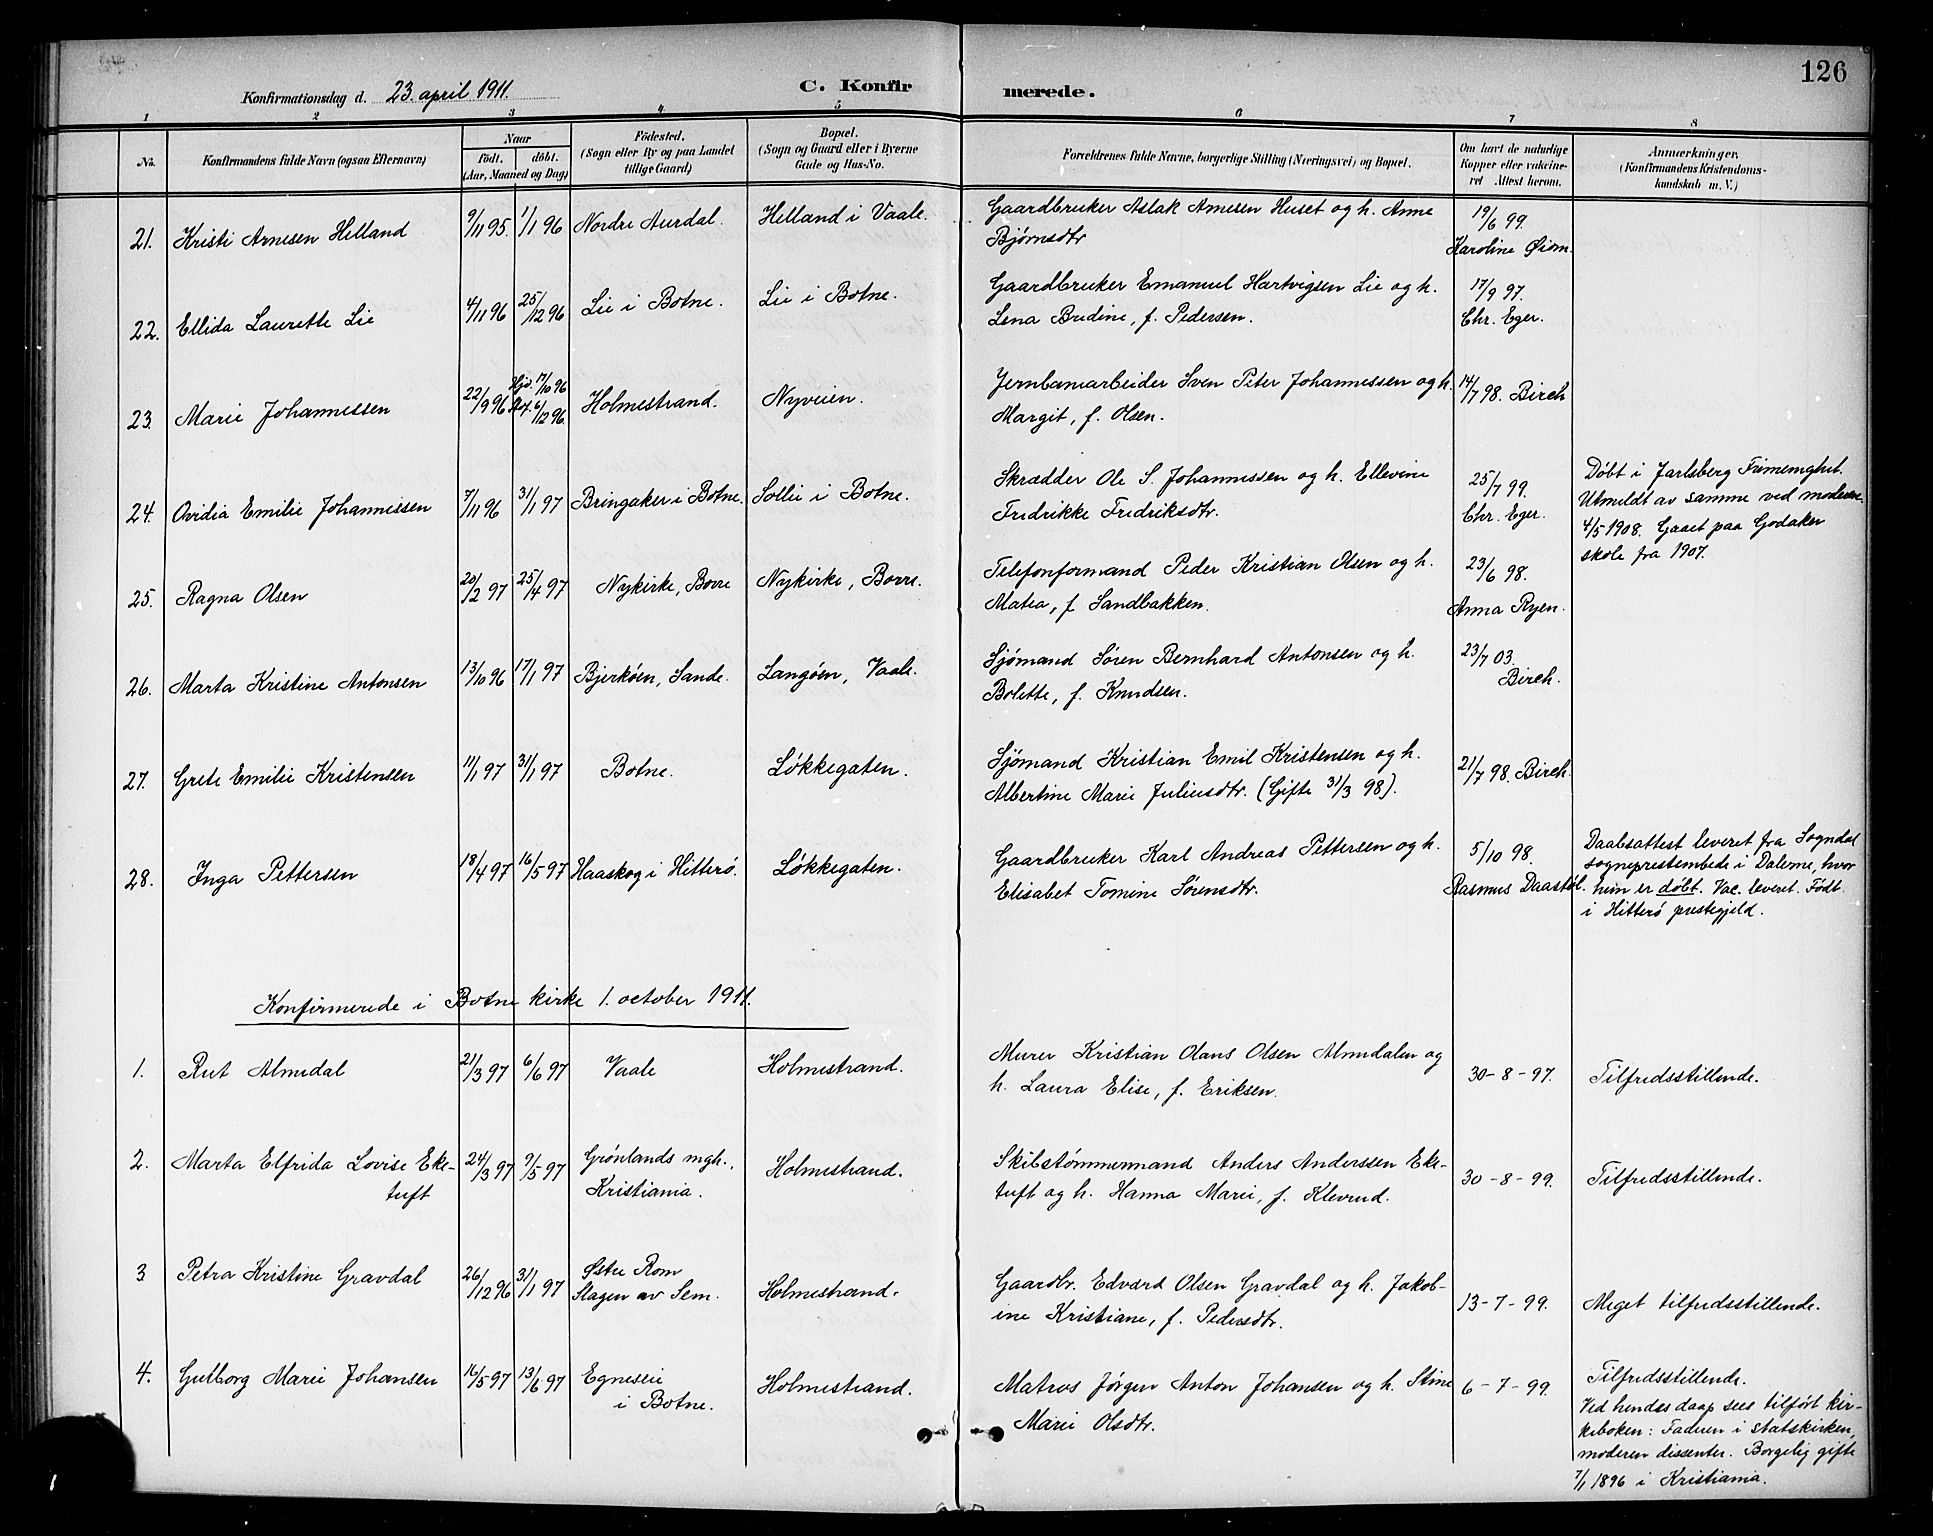 126
Konfirmationsdag d. 23. april 1911.
C. Konfirmerede.
1 2 3 4 5 6 7 8
No.
Konfirmandens fulde Navn (ogsaa Efternavn)
Naar
födt. döbt.
(Aar, Maaned og Dag)
Födested.
(Sogn eller By og paa Landet
tillige Gaard)
Bopæl.
(Sogn og Gaard eller i Byerne
Gade og Hus-No.
Forældrenes fulde Navne, borgerlige Stilling (Næringsvei) og Bopæl.
Om havt de naturlige
Kopper eller vakcine-
ret Attest herom.
Anmærkninger,
(Konfirmandens Kristendoms-
kundskab m. V.)
21. Kristi Arnesen Helland 9/11 95. 1/1 96 Nordre Aurdal. Helland i Vaale. Gaardbruker Aslak Arnesen Huset og h. Anne
Bjørnsdtr
19/6 99.
Karoline Øiom.
22. Ellida Laurette Lie 4/11 96 25/12 96 Lie i Botne. Lie i Botne. Gaardbruker Emanuel Hartvigsen Lie og h.
Lena Budine, f. Pedersen.
17/9 97.
Chr. Eger.
23. Marie Johannessen 22/9 96 Hjd. 17/10 96
Stof. 6/12 96. Holmestrand. Nyveien. Jernbanarbeider Sven Peter Johannessen og h.
Margit, f. Olsen.
14/7 98. Birch
24. Ovidia Emilie Johannissen 7/11 96 31/1 97 Bringaker i Botne. Sollie i Botne. Skrædder Ole S. Johannissen og h. Ellevine
Fredrikke Fredriksdtr.
25/7 99.
Chr. Eger.
Døbt i Jarlsberg Frimenighet.
Utmeldt av samme ved moderen
4/5 1908. Gaaet paa Godaker
skole fra 1907.
25. Ragna Olsen 20/2 97 25/4 97 Nykirke, Borre Nykirke, Borre. Telefonformand Peder Kristian Olsen og h.
Matea, f. Sandbakken.
23/6 98.
Anna Ryen.
26. Marta Kristine Antonsen 13/10 96 17/1 97 Bjerkøen, Sande. Langøen, Vaale. Sjømand Søren Bernhard Antonsen og h.
Bolette, f. Knudsen.
23/7 03.
Birch.
27. Grete Emilie Kristensen 11/1 97 31/1 97 Botne. Løkkegaten. Sjømand Kristian Emil Kristensen og h.
Albertine Marie Juliusdtr. (Gifte 31/3 98).
21/7 98. Birch.
28. Inga Pettersen 18/4 97 16/5 97 Haaskog i Hitterø. Løkkegaten. Gaardbruker Karl Andreas Pettersen og h.
Elisabet Tomine Sørensdtr.
5/10 98.
Rasmus Daastøl.
Daabsattest leveret fra Sogndal
sogneprestembede i Dalerne, hvor
hun er døbt. Vac. leveret. Født
i Hitterø prestegjeld.
Konfirmerede i Botne kirke 1. october 1911.
1. Rut Almedal 21/3 97 6/6 97 Vaale Holmestrand. Murer Kristian Olaus Olsen Almedalen og
h. Laura Elise, f. Eriksen.
30-8-97. Tilfredsstillende.
2. Marta Elfrida Lovise Eke-
tuft 24/3 97 9/5 97 Grønlands mgh.,
Kristiania. Holmestrand. Skibstømmermand Anders Anderssen Eke-
tuft og h. Hanna Marie, f. Klevrud.
30-8-99. Tilfredsstillende.
3 Petra Kristine Gravdal 26/12 96 31/1 97 Østre Rom
Slagen av Sem. Holmestrand. Gaardbr. Edvard Olsen Gravdal og h. Jakob-
ine Kristiane, f. Pedersdtr.
13-7-99. Meget tilfredsstillende.
4. Gulborg Marie Johansen 16/5 97 13/6 97 Egneseie
i Botne. Holmestrand. Matros Jørgen Anton Johansen og h. Stine
Marie Olsdtr.
6-7-99. Tilfredsstillende.
Ved hendes daap sees tilført kir-
keboken: Faderen i statskirken,
moderen dissenter. Borgelig gifte
7/1 1896 i Kristiania.